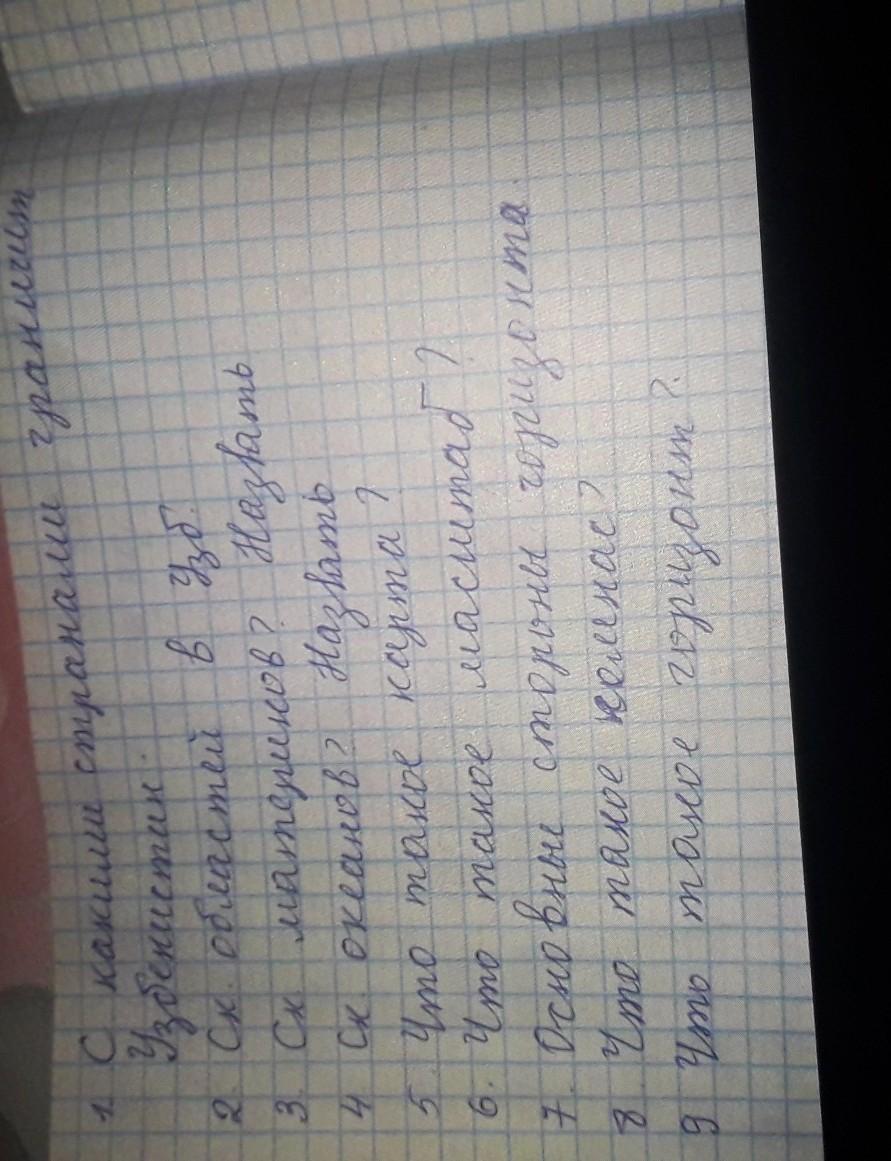 1. С какими странами граничит
Узбекистан.
2. Ск. областей в Узб.
3. Ск. материков? Назвать
4 Ск. океанов? Назвать
5. Что такое карта?
6. Что такое масштаб?
7. Основные стороны горизонта.
8. Что такое компас?
9 Что такое горизонт?